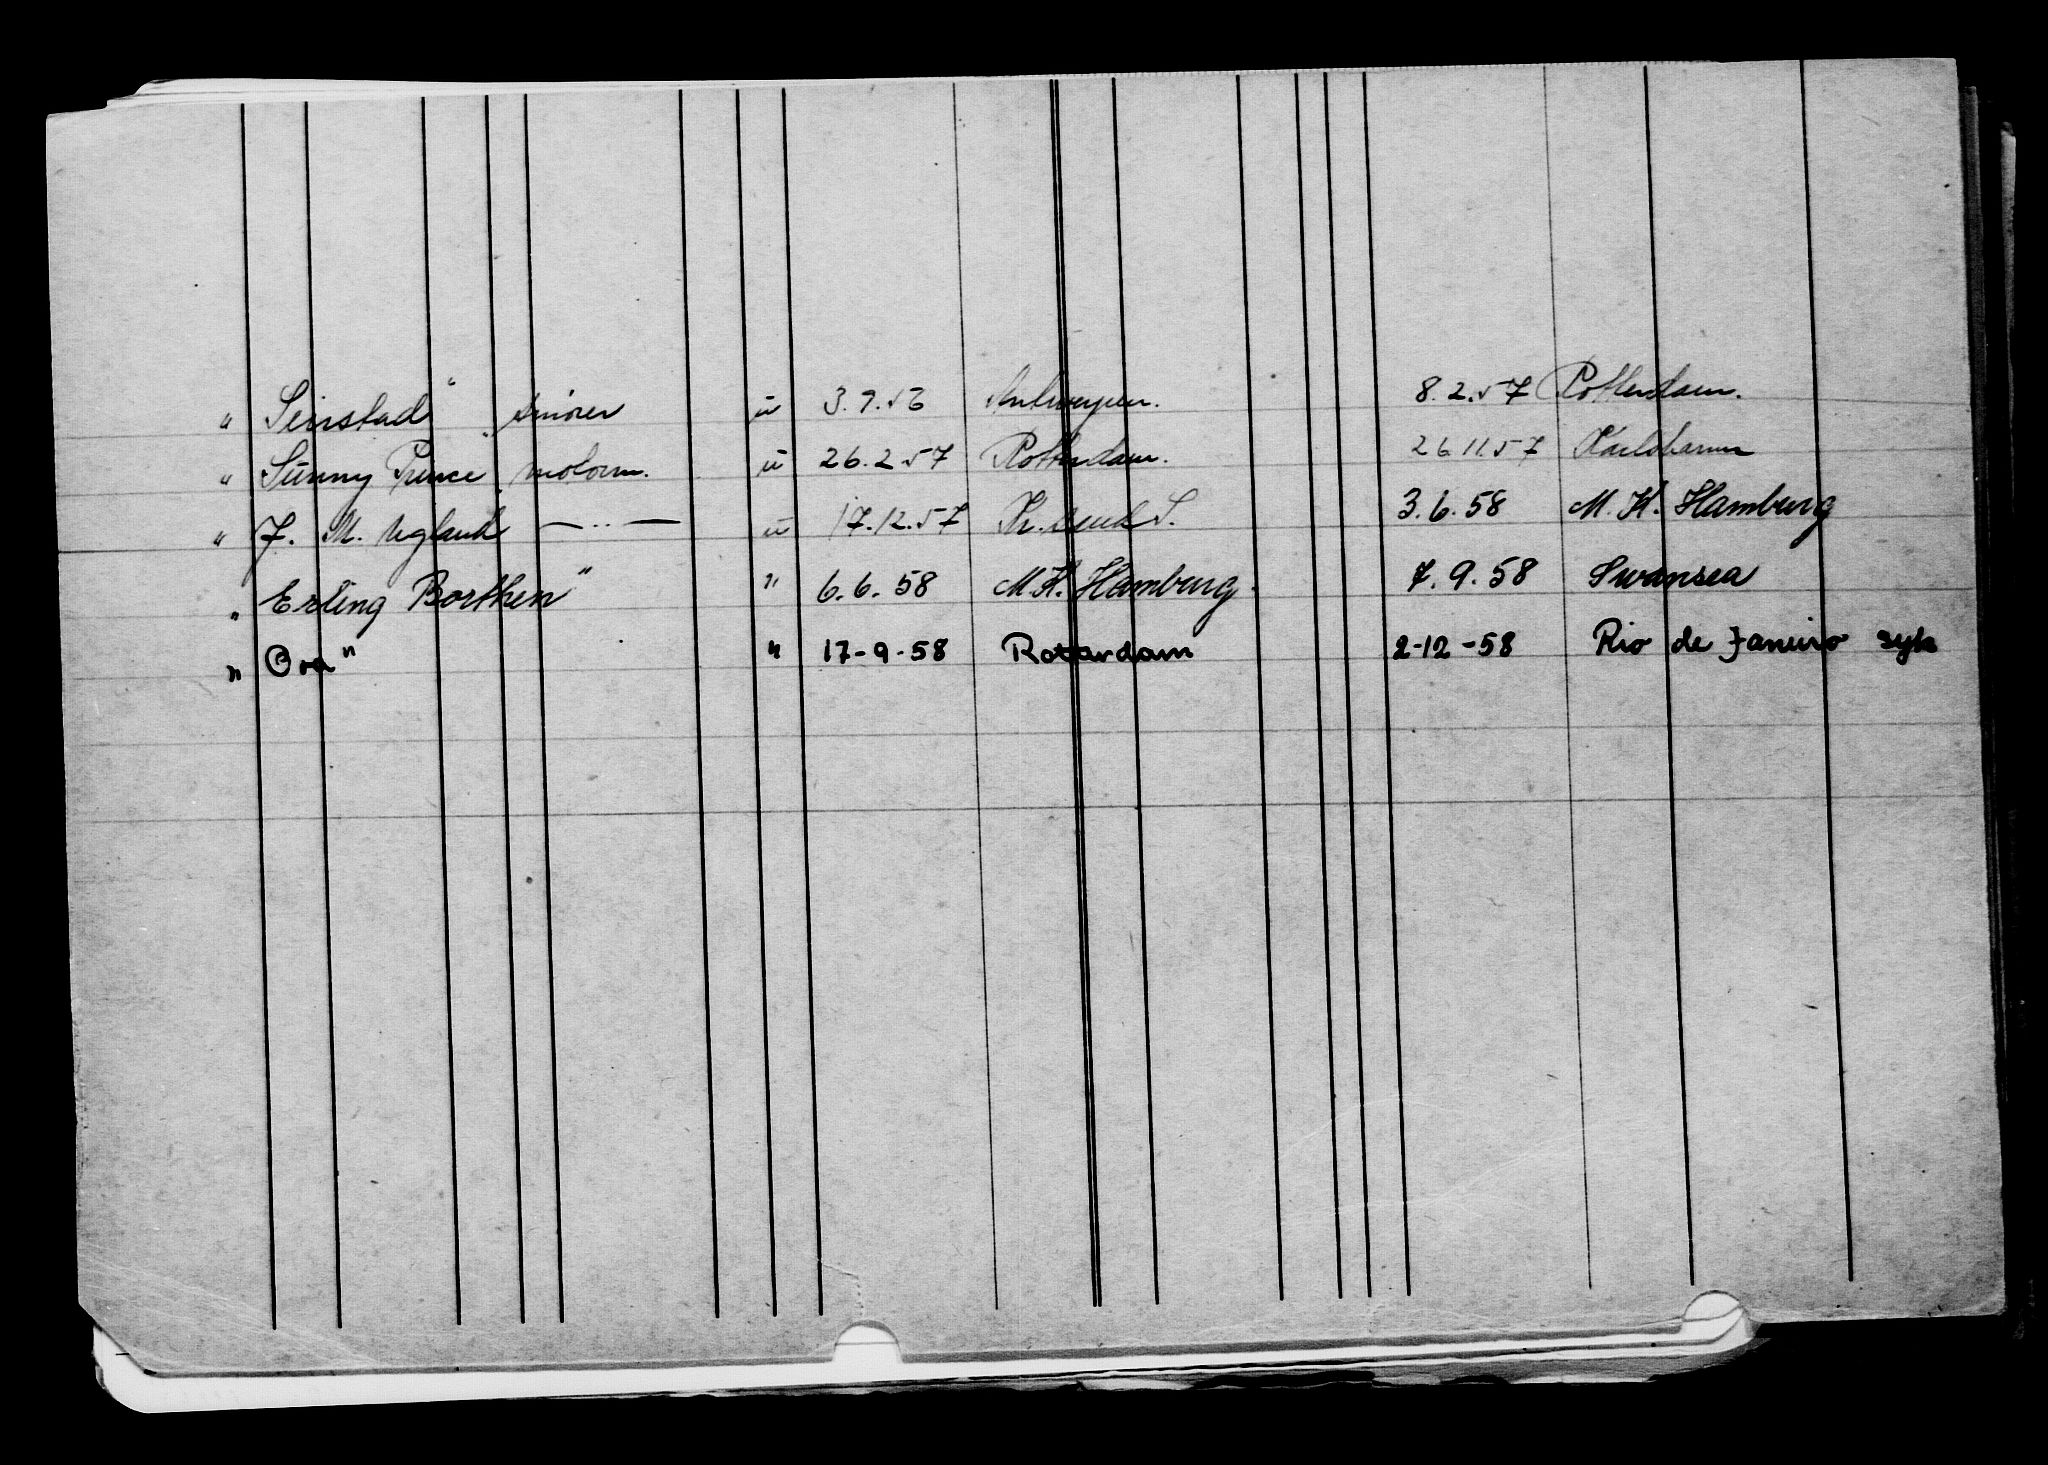 " Seirstad" smörer " 3.9.56 Antwerpen. 8.2.57 Rotterdam.
" Sunny Prince" motorm. " 26.2.57 Rotterdam. 26.11.57 Karlshamn
" J. M. Ugland —..— " 17.12.57 Kr.sund S. 3.6.58 M. K. Hamburg
" Erling Borthen" " 6.6.58 M.K. Hamburg. 7.9.58 Swansea
" Ora" " 17-9-58 Rotterdam 2-12-58 Rio de Janeiro syk